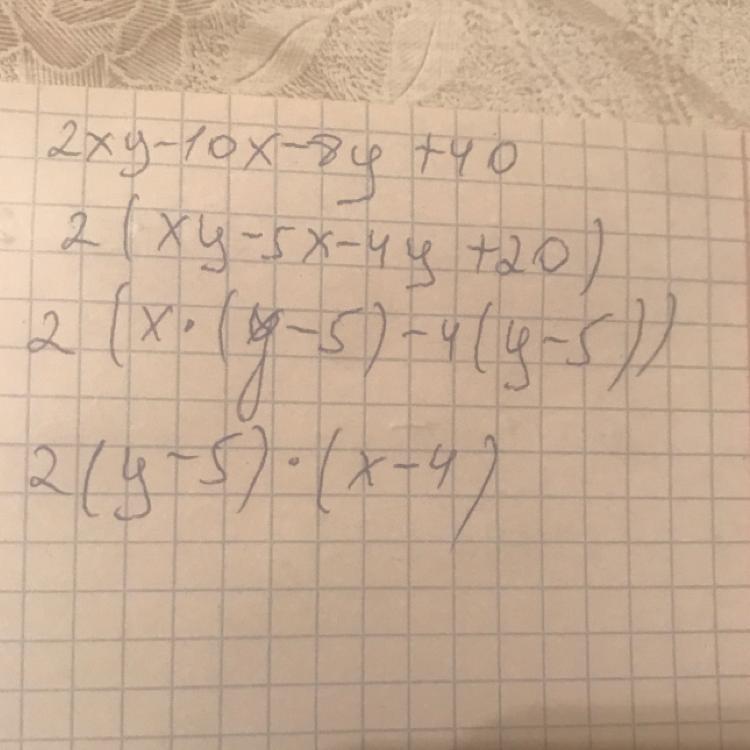 2xy-10x-8y+40
2(xy-5x-4y+20)
2(x·(y-5)-4(y-5))
2(y-5)·(x-4)